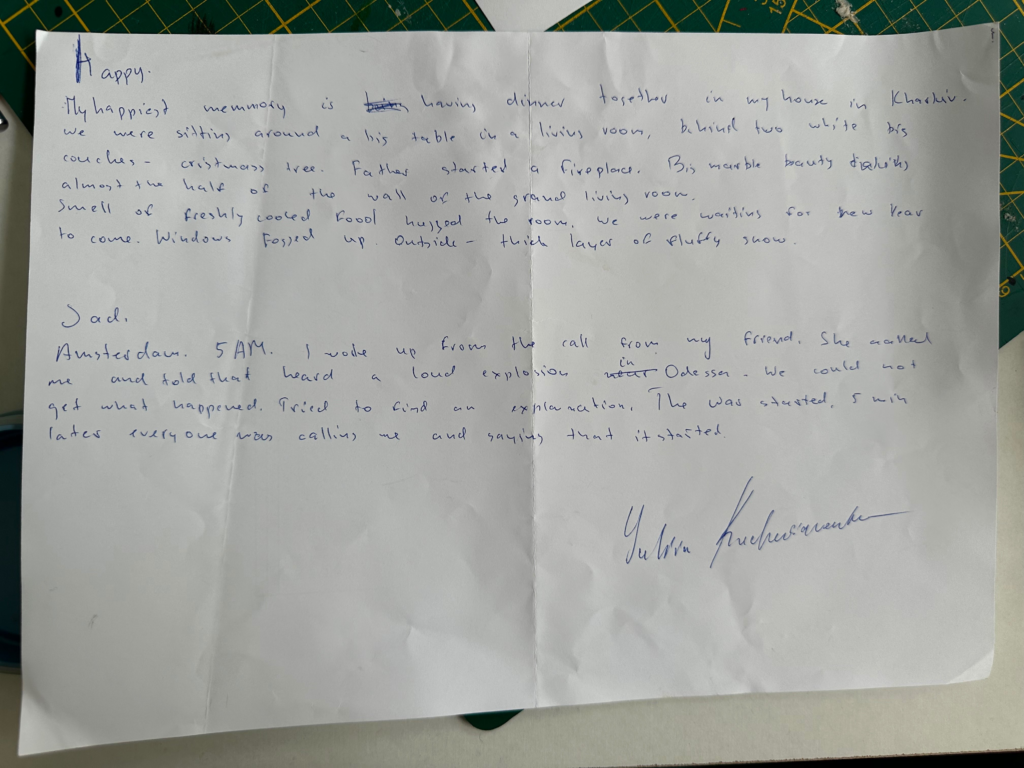 Happy.
My happiest memmory is having dinner together in my house in Kharkiv.
we were sitting around a big table in a living room, behind two white big
couches - cristmass tree. Father started a fireplace. Big marble beauty
almost the half of the wall of the grand living room.
Smell of freshly cooked food hugged the room. we were waiting for new Year
to come. Windows fogged up. Outside - thick layer of fluffy snow.
Sad.
Amsterdam. 5 AM. I woke up from the call from my friend. She called
me and told that heard a loud explosion in Odessa. We could not
get what happened. Tried to find an explanation. The was started. 5 min
later everyone was calling me and saying that it started.
Yuliia